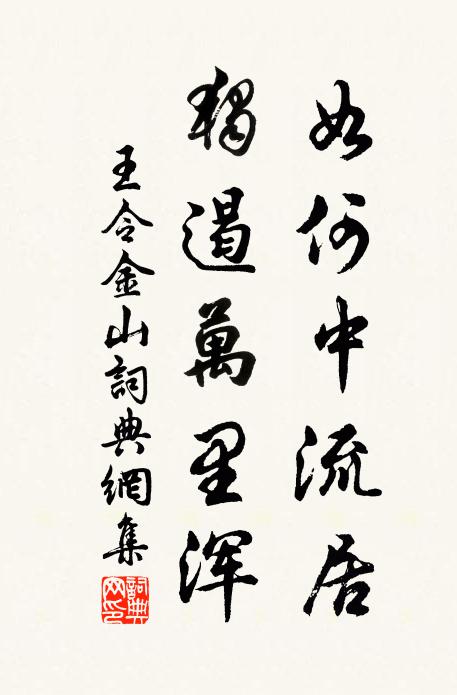 如何中流居
獨遏萬里浑
王令金山詞典網集
詞典网印